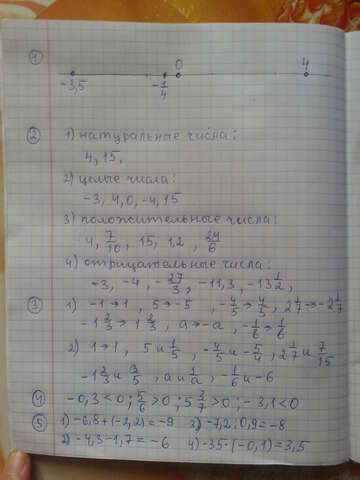 1
0 4
-3,5 -1/4
2 1) натуральные числа:
4, 15,
2) целые числа:
-3, 4, 0, -4, 15
3) положительные числа:
4, 7/10, 15, 1,2, 24/6
4) отрицательные числа:
-3, -4, -27/3, -11,3, -13 1/2,
3 1) -1→1, 5→-5, -4/5→4/5, 2 1/7→-2 1/7
-1 2/3→1 2/3, a→-a, -1/6→1/6
2) 1→1, 5 и 1/5, -4/5 и -5/4, 2 1/7 и 7/15
-1 2/3 и 3/5, a и 1/a, -1/6 и -6
4 -0,3<0; 5/6>0; 5 3/7>0; -3,1<0
5 1) -6,8+(-2,2)=-9 3) -7,2:0,9=-8
2) -4,3-1,7=-6 4) -35·(-0,1)=3,5